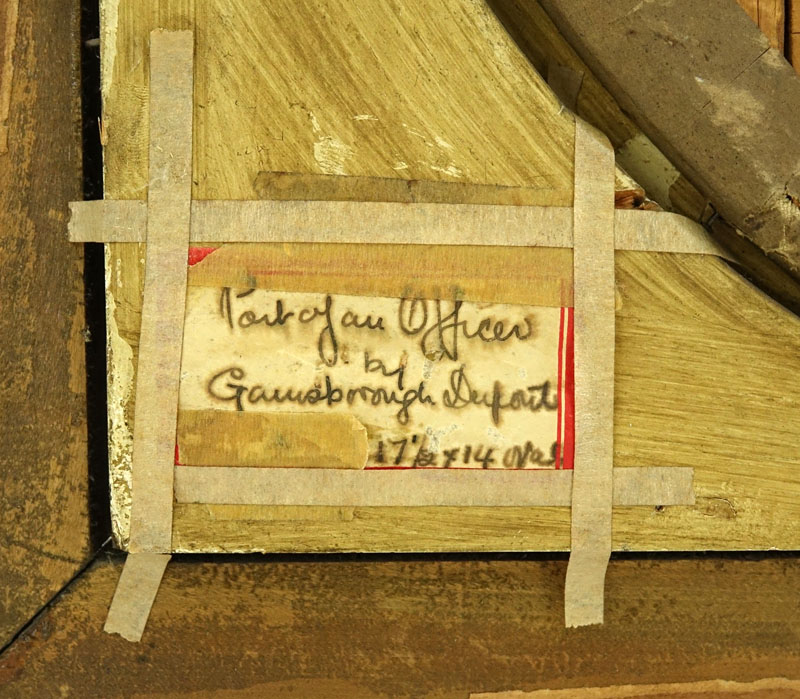 Port of an Officer
by
Gainsborough Dupont
17½ x 14 Oval